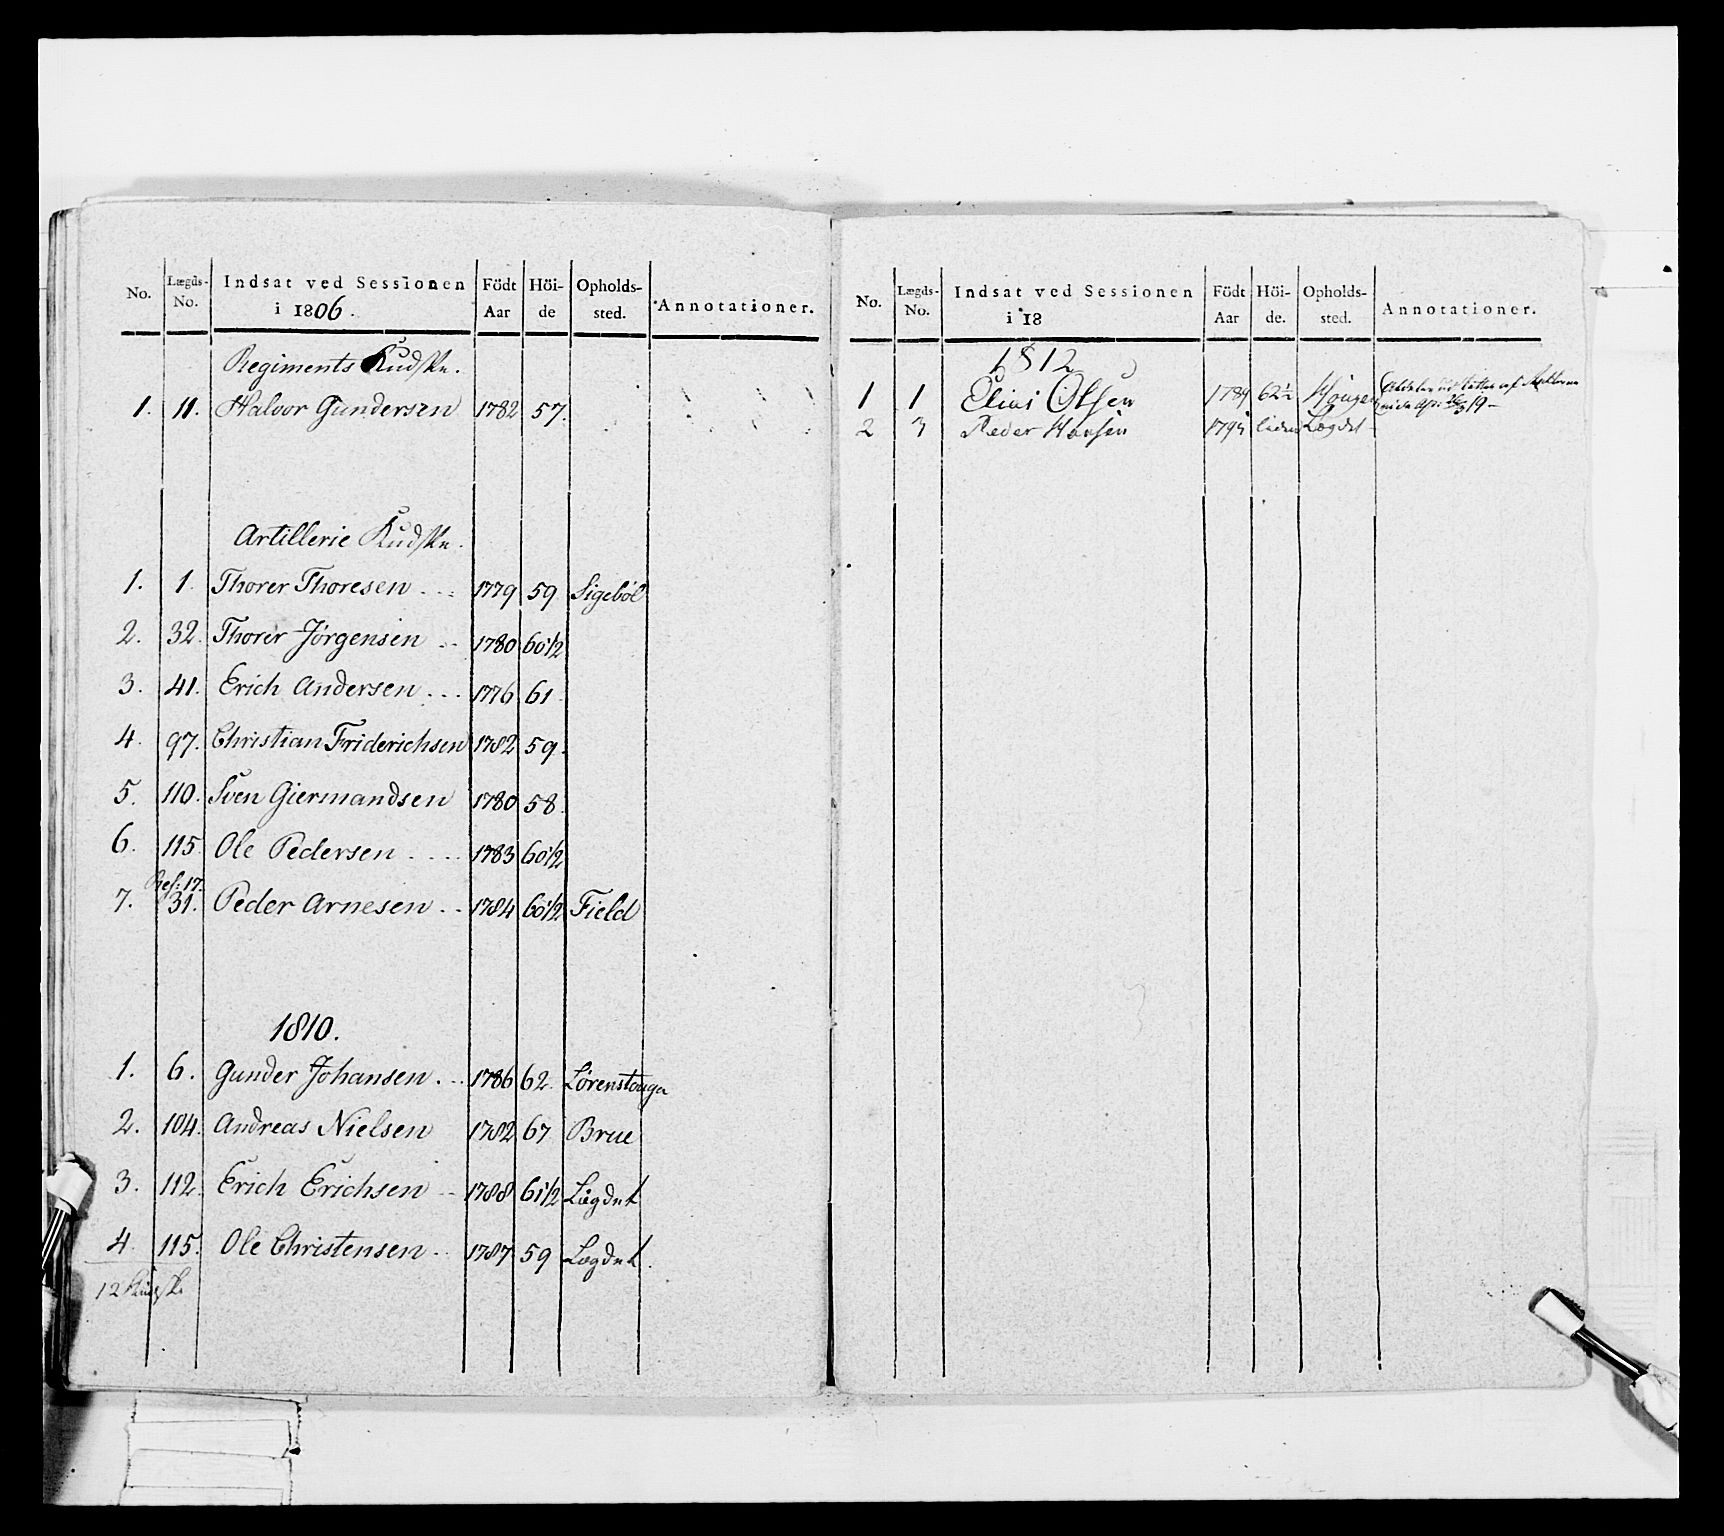 No. Lægds-No. Indsat ved Sessionen i 1806. Födt Aar Höi-de Opholds-sted. Annotationer.
Regiments Kudske.
1. 11. Halvor Gundersen 1782 57.
Artillerie Kudske.
1. 1. Thorer Thoresen 1779 59 Sigebøl
2. 32. Thorer Jørgensen 1780 60 1/2
3. 41. Erich Andersen 1776 61
4. 97. Christian Friderichsen 1782 59.
5. 110. Sven Giermandsen 1780 58.
6. 115. Ole Pedersen 1783 60 1/2
Ref: 17.
7. 31. Peder Arnesen 1784 60 1/2 Field
1810.
1. 6. Gunder Johansen 1786 62 Lørenstouga
2. 104. Andreas Nielsen 1782 67 Brue
3. 112. Erich Erichsen 1788 61 1/2 Lægdet
4. 115. Ole Christensen 1787 59 Lægdet.
12 Kudske
No. Lægds-No. Indsat ved Sessionen i 18 Födt Aar Höi-de. Opholds-sted. Annotationer.
1812
1 1 Elias Olsen 1789 62 1/2
2 3 Peder Hansen Lægdet